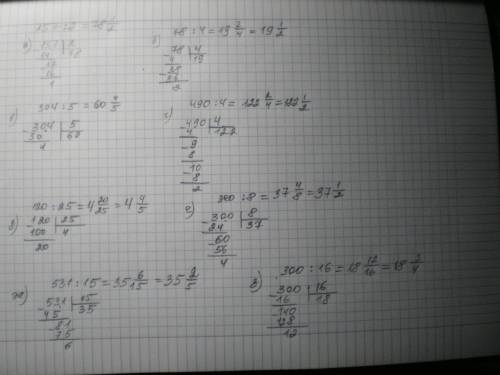 78 : 4 = 19 2/4 = 19 1/2
б)
78 | 4
-4 | 19
38
2
304 : 5 = 60 4/5
-304 | 5
30 | 60
4
г) 490 : 4 = 122 2/4 = 122 1/2
-490 | 4
4 | 122
-9
8
-10
8
2
120 : 25 = 4 20/25 = 4 4/5
-120 | 25
100 | 4
20
е) 300 : 8 = 37 4/8 = 37 1/2
-300 | 8
24 | 37
-60
56
4
ж) 531 : 15 = 35 6/15 = 35 2/5
-531 | 15
45 | 35
-81
75
6
з) 300 : 16 = 18 12/16 = 18 3/4
-300 | 16
16 | 18
-140
128
12